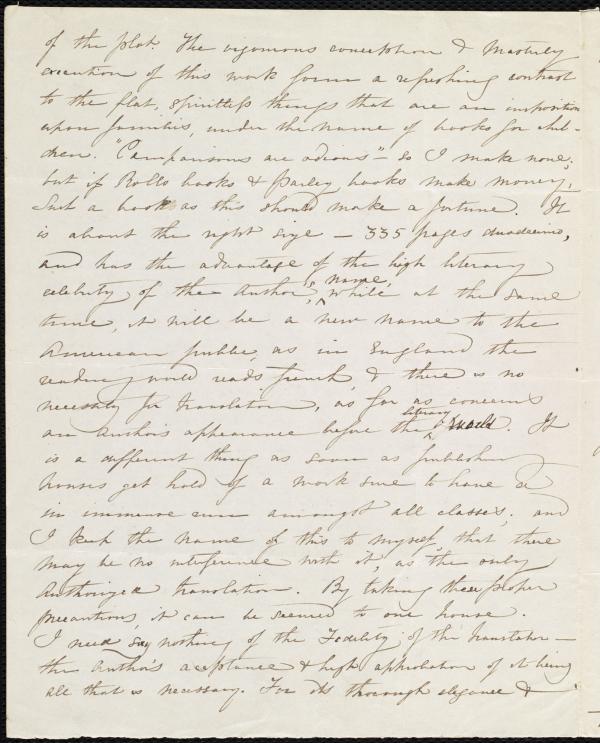 of the plot. The vigorous conception & masterly
execution of this work form a refreshing contrast
to the flat, spiritless things that are an imposition
upon families, under the name of books for chil-
dren. "Comparisons are odious" - so I make none;
but if Rollo books & Parley books make money,
Such a book as this should make a fortune. It
is about the right size - 335 pages duodecimo,
and has the advantage of the high literary
celebrity of the Author's name, while at the same
time, it will be a new name to the
American public, as in England the
reading world reads french, & there is no
necessity for translation, as far as concerns
an Author's appearance before the literary world. It
is a different thing as soon as publishing
houses get hold of a work sure to have a
in immense run amongst all classes, and
I keep the name of this to myself, that there
may be no interference with it, as the only
Authorized translation. By taking the proper
precautions, it can be secured to one house.
I need say nothing of the Fidelity of the translator -
the Author's acceptance & high approbation of it being
all that is necessary. For its thorough elegance &